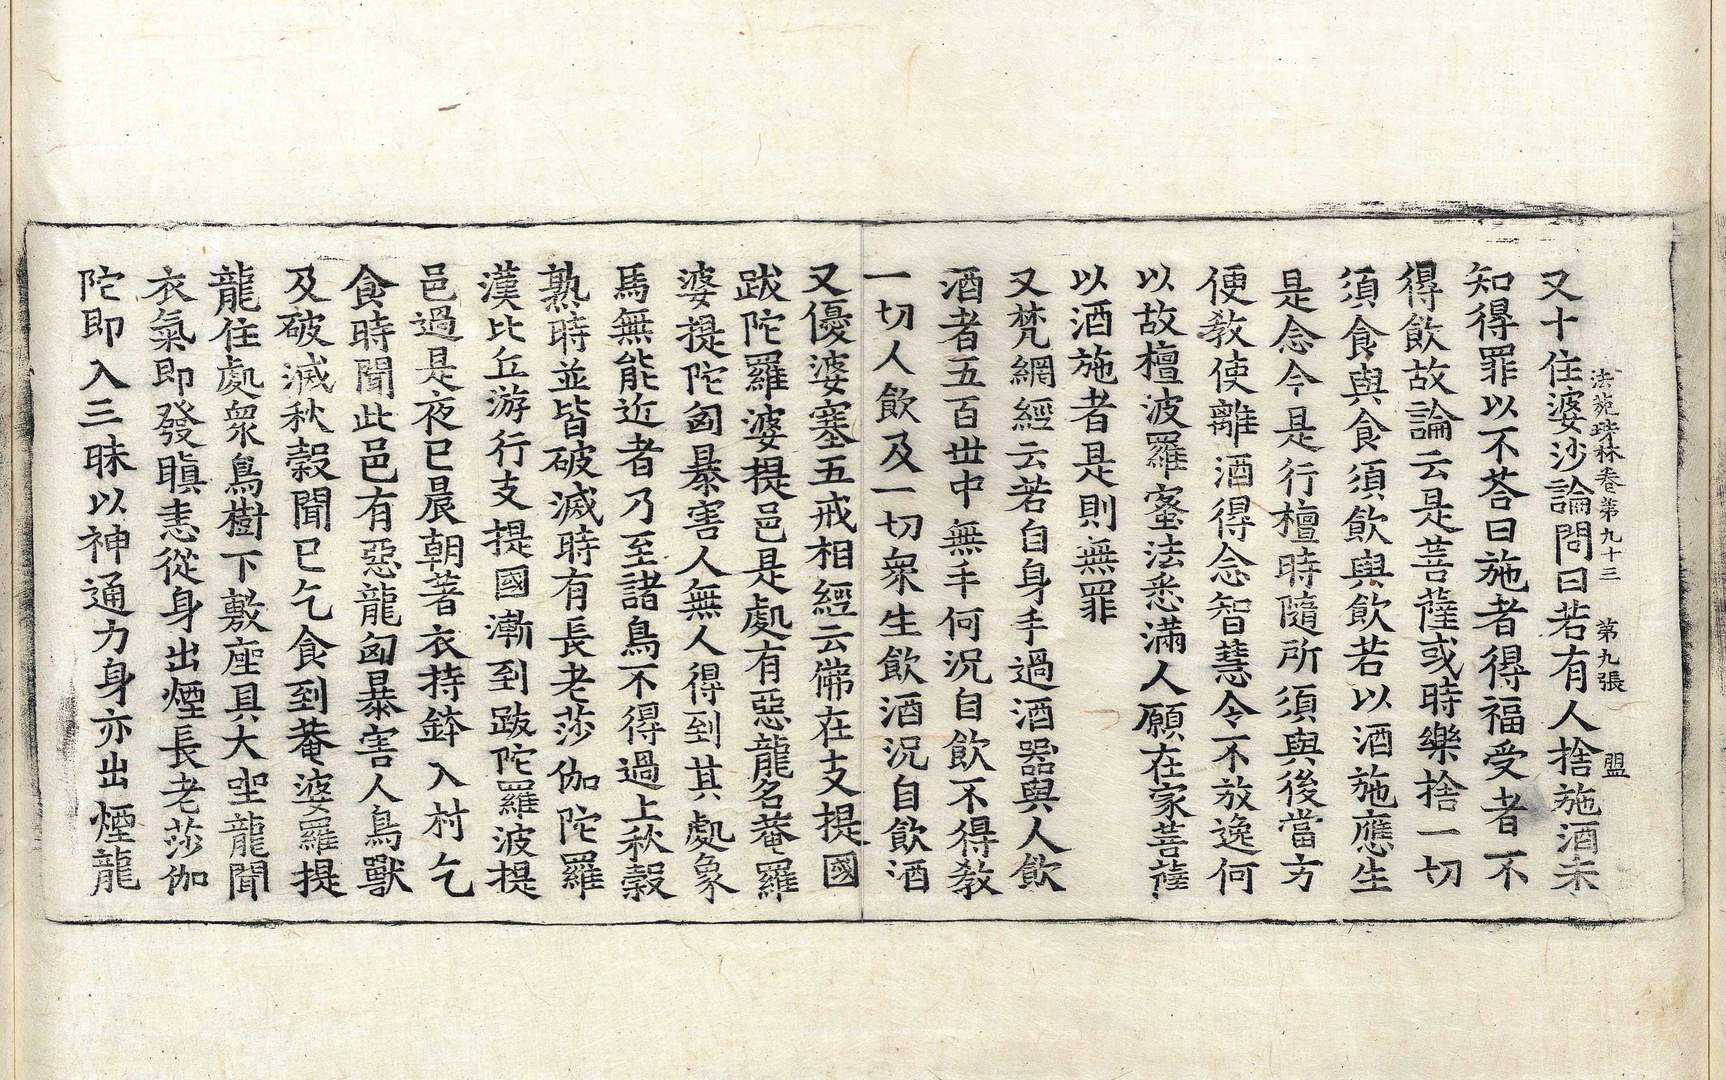 法苑珠林卷第九十三　第九張　盟
又十住婆沙論問曰若有人捨施酒未
知得罪以不荅曰施者得福受者不
得飲故論云是菩薩或時樂捨一切
須食與食須飲與飲若以酒施應生
是念今是行檀時隨所須與後當方
便教使離酒得念智慧令不放逸何
以故檀波羅蜜法悉滿人願在家菩薩
以酒施者是則無罪
又梵網經云若自身手過酒器與人飲
酒者五百世中無手何況自飲不得教
一切人飲及一切衆生飲酒況自飲酒
又優婆塞五戒相經云佛在支提國
跋陀羅婆提邑是處有惡龍名菴羅
婆提陀匈暴害人無人得到其處象
馬無能近者乃至諸鳥不得過上秋穀
熟時並皆破滅時有長老莎伽陀羅
漢比丘游行支提國漸到跋陀羅波提
邑過是夜已晨朝著衣持鉢入村乞
食時聞此邑有惡龍匈暴害人鳥獸
及破滅秋穀聞已乞食到菴婆羅提
龍住處衆鳥樹下敷座具大坐龍聞
衣氣即發瞋恚從身出煙長老莎伽
陀即入三昧以神通力身亦出煙龍